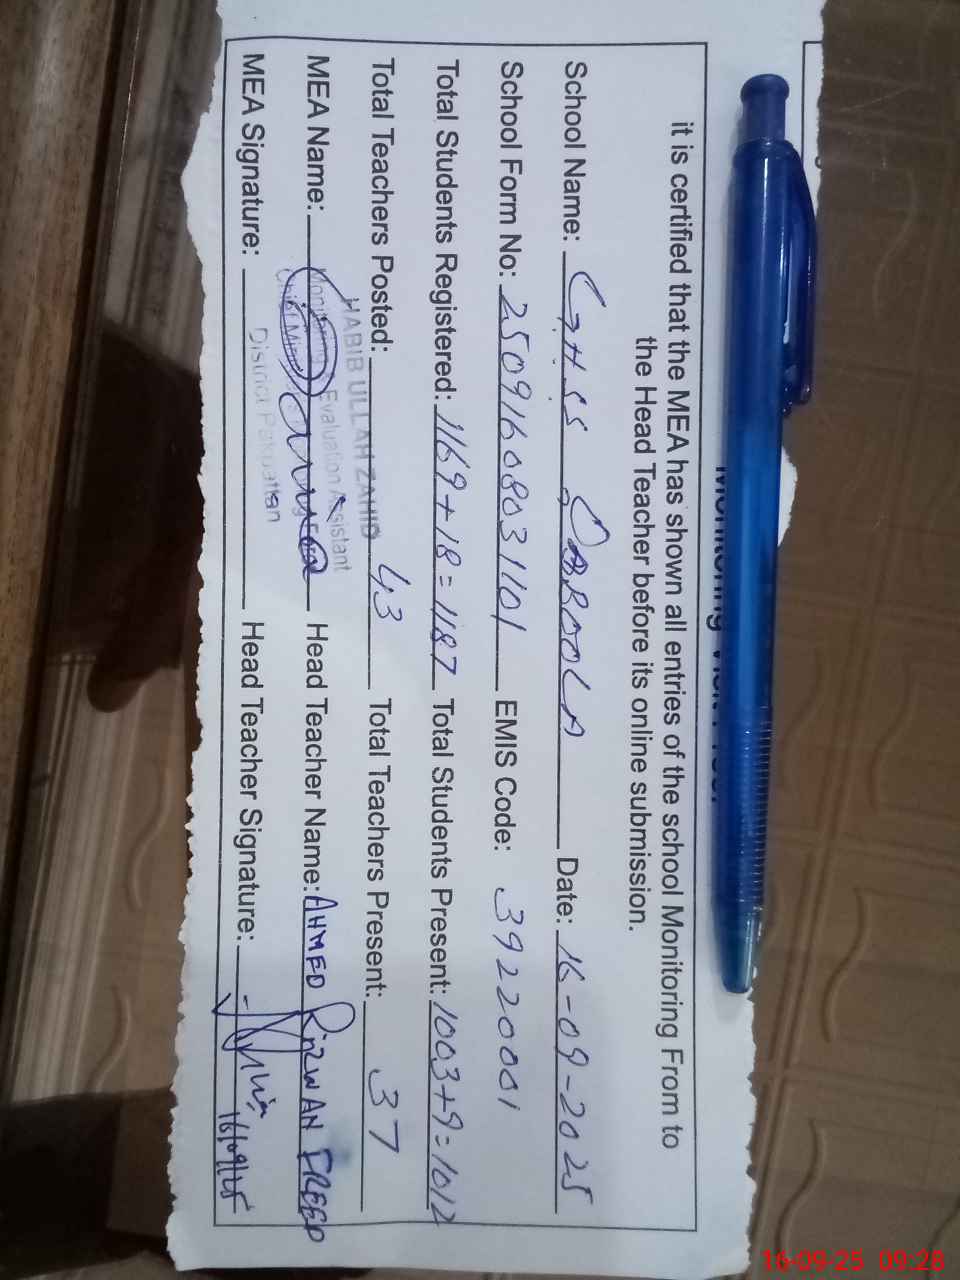 Monitoring Visit
it is certified that the MEA has shown all entries of the school Monitoring From to
the Head Teacher before its online submission.
School Name: GHSS Date: 16-09-2025
School Form No: 25091608031101 EMIS Code: 39220001
Total Students Registered: 1169+18=1187 Total Students Present: 1003+9=1012
Total Teachers Posted: 43 Total Teachers Present: 37
HABIB ULLAH ZAHID
Monitoring Evaluation Assistant
District Pakpattan
MEA Name: Head Teacher Name: AHMED RIZWAN FREED
MEA Signature: Head Teacher Signature: 16/09/25
16-09-25 09:28